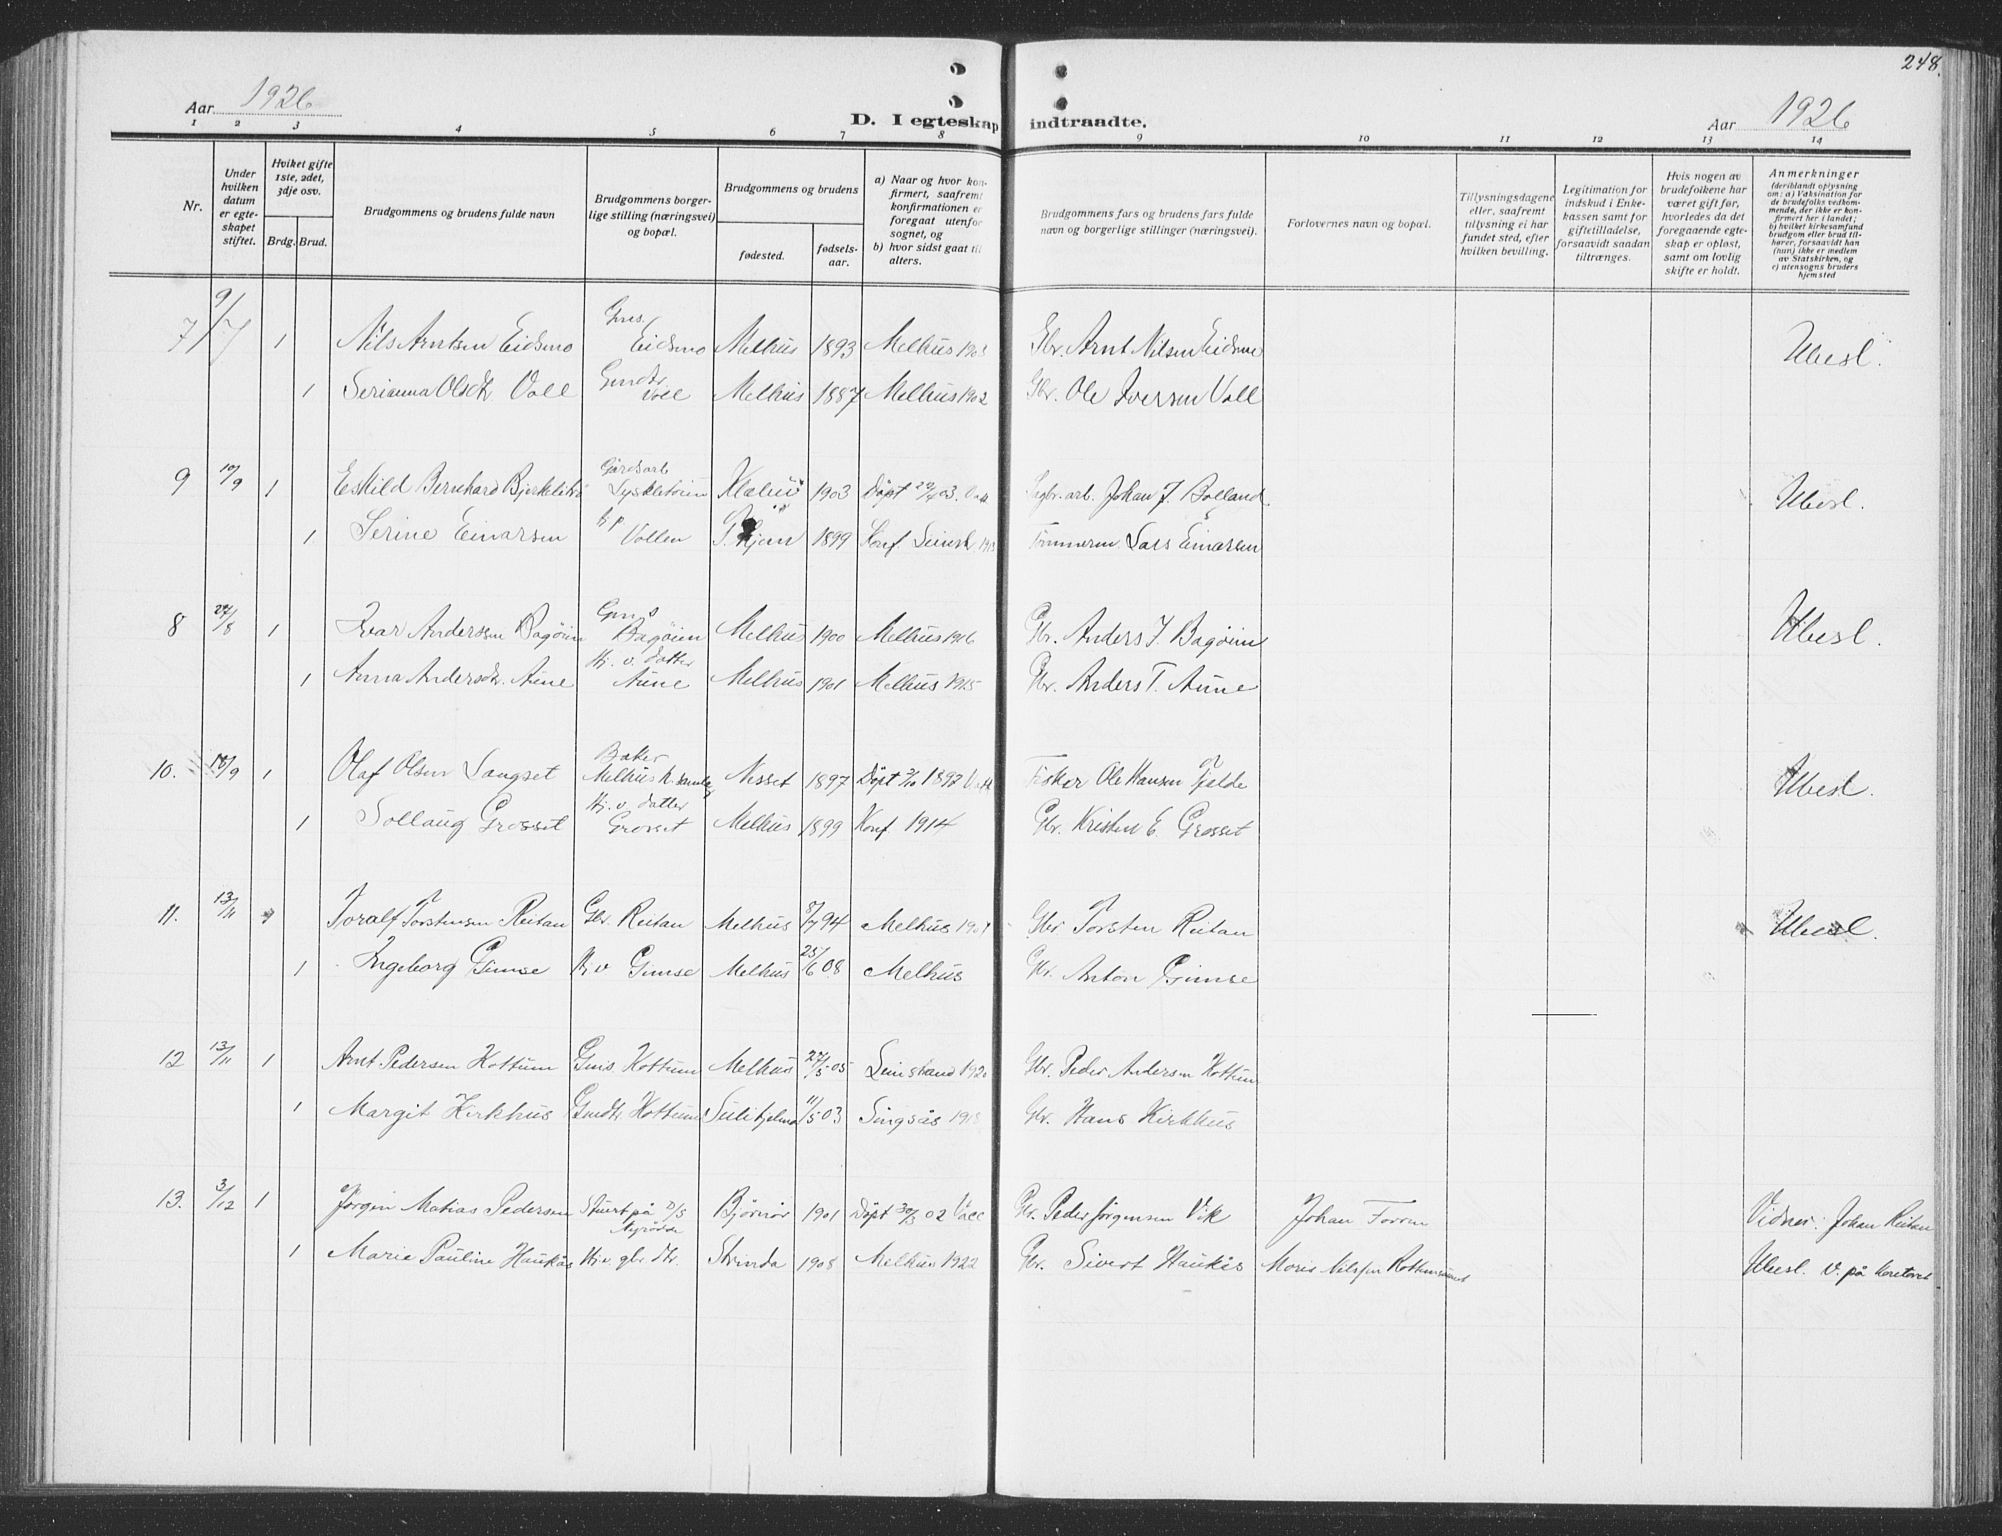 248.
Aar 1926
D. I egteskap indtraadte.
Aar 1926
1 2 3 4 5 6 7 8 9 10 11 12 13 14
Nr.
Under hvilken datum er egteskapet stiftet.
Hvilket gifte 1ste, 2det, 3dje osv.
Brdg. Brud.
Brudgommens og brudens fulde navn
Brudgommens borgerlige stilling (næringsvei) og bopæl.
Brudgommens og brudens
fødested.
fødselsaar.
a) Naar og hvor konfirmert, saafremt konfirmationen er foregaat utenfor sognet, og
b) hvor sidst gaat til alters.
Brudgommens fars og brudens fars fulde navn og borgerlige stillinger (næringsvei).
Forlovernes navn og bopæl.
Tillysningsdagene eller, saafremt tillysning ei har fundet sted, efter hvilken bevilling.
Legitimation for indskud i Enkekassen samt for giftetilladelse, forsaavidt saadan tiltrænges.
Hvis nogen av brudefolkene har været gift før, hvorledes da det foregaaende egteskap er opløst, samt om lovlig skifte er holdt.
Anmerkninger
(deriblandt oplysning om: a) Vaksination for de brudefolks vedkommende, der ikke er konfirmert her i landet; b) hvilket kirkesamfund brudgom eller brud tilhører, forsaavidt han (hun) ikke er medlem av Statskirken, og c) utensogns bruders hjemsted
7 9/7 1 Nils Arntsen Eidsmo Gms. Eidsmo Melhus 1893 Melhus Gbr. Arnt Nilsen Eidsmo Ubesl.
1 Serianna Olsdtr Voll Gmdtr Voll Melhus 1887 Melhus 1902 Gbr. Ole Iversen Voll
9 10/9 1 Eskild Bernhard Gårdsarb 1903 Døpt Johan J. Bolland Ubesl.
1 Serine Einarsen Vollen 1899 Konf. Lars Einarsen
8 1 Ivar Andersen Bagøien Gms Bagøien Melhus 1900 Melhus 1916 Gbr. Anders J. Bagøien Ubesl.
1 Anna Andersdtr. Aune Hj. v. datter Aune Melhus 1901 Melhus 1915 Gbr. Anders T. Aune
10. 18/9 1 Olaf Olsen Langset Baker Melhus k. samlag Nesset 1897 Døpt Fisker Ole Hansen Tjelde Ubesl.
1 Sollaug Grosset Hj. v. datter Grosset Melhus 1899 Konf 1914 Gbr. Kristen E. Grosset
11. 13/11 1 Toralf Torstensen Reitan Gbr. Reitan Melhus 8/7 94 Melhus Gbr Torsten Reitan Ubesl.
1 Ingeborg Gimse Hj v Gimse Melhus 25/6 08 Melhus Gbr. Anton Gimse
12 13/11 1 Arnt Pedersen Hottum Gms Hottum Melhus 27/5 05 Leinstrand 1920 Gbr. Peder Andersen Hottum
1 Margit Kirkhus Gmdtr Hottum Sulitjelma 11/5 03 Singsås Gbr. Hans Kirkhus
13. 3/12 1 Jørgin Matias Pedersen Stuert på D/S Bjørnør 1901 Døpt 30/3 02 Gbr. Peder Jørgensen Vik Johan Forren Vidner: Johan Reitan
1 Marie Pauline Haukås Hj.v. gbr dtr. Strinda 1908 Melhus 1922 Gbr. Sivert Haukås Ubesl. V. på